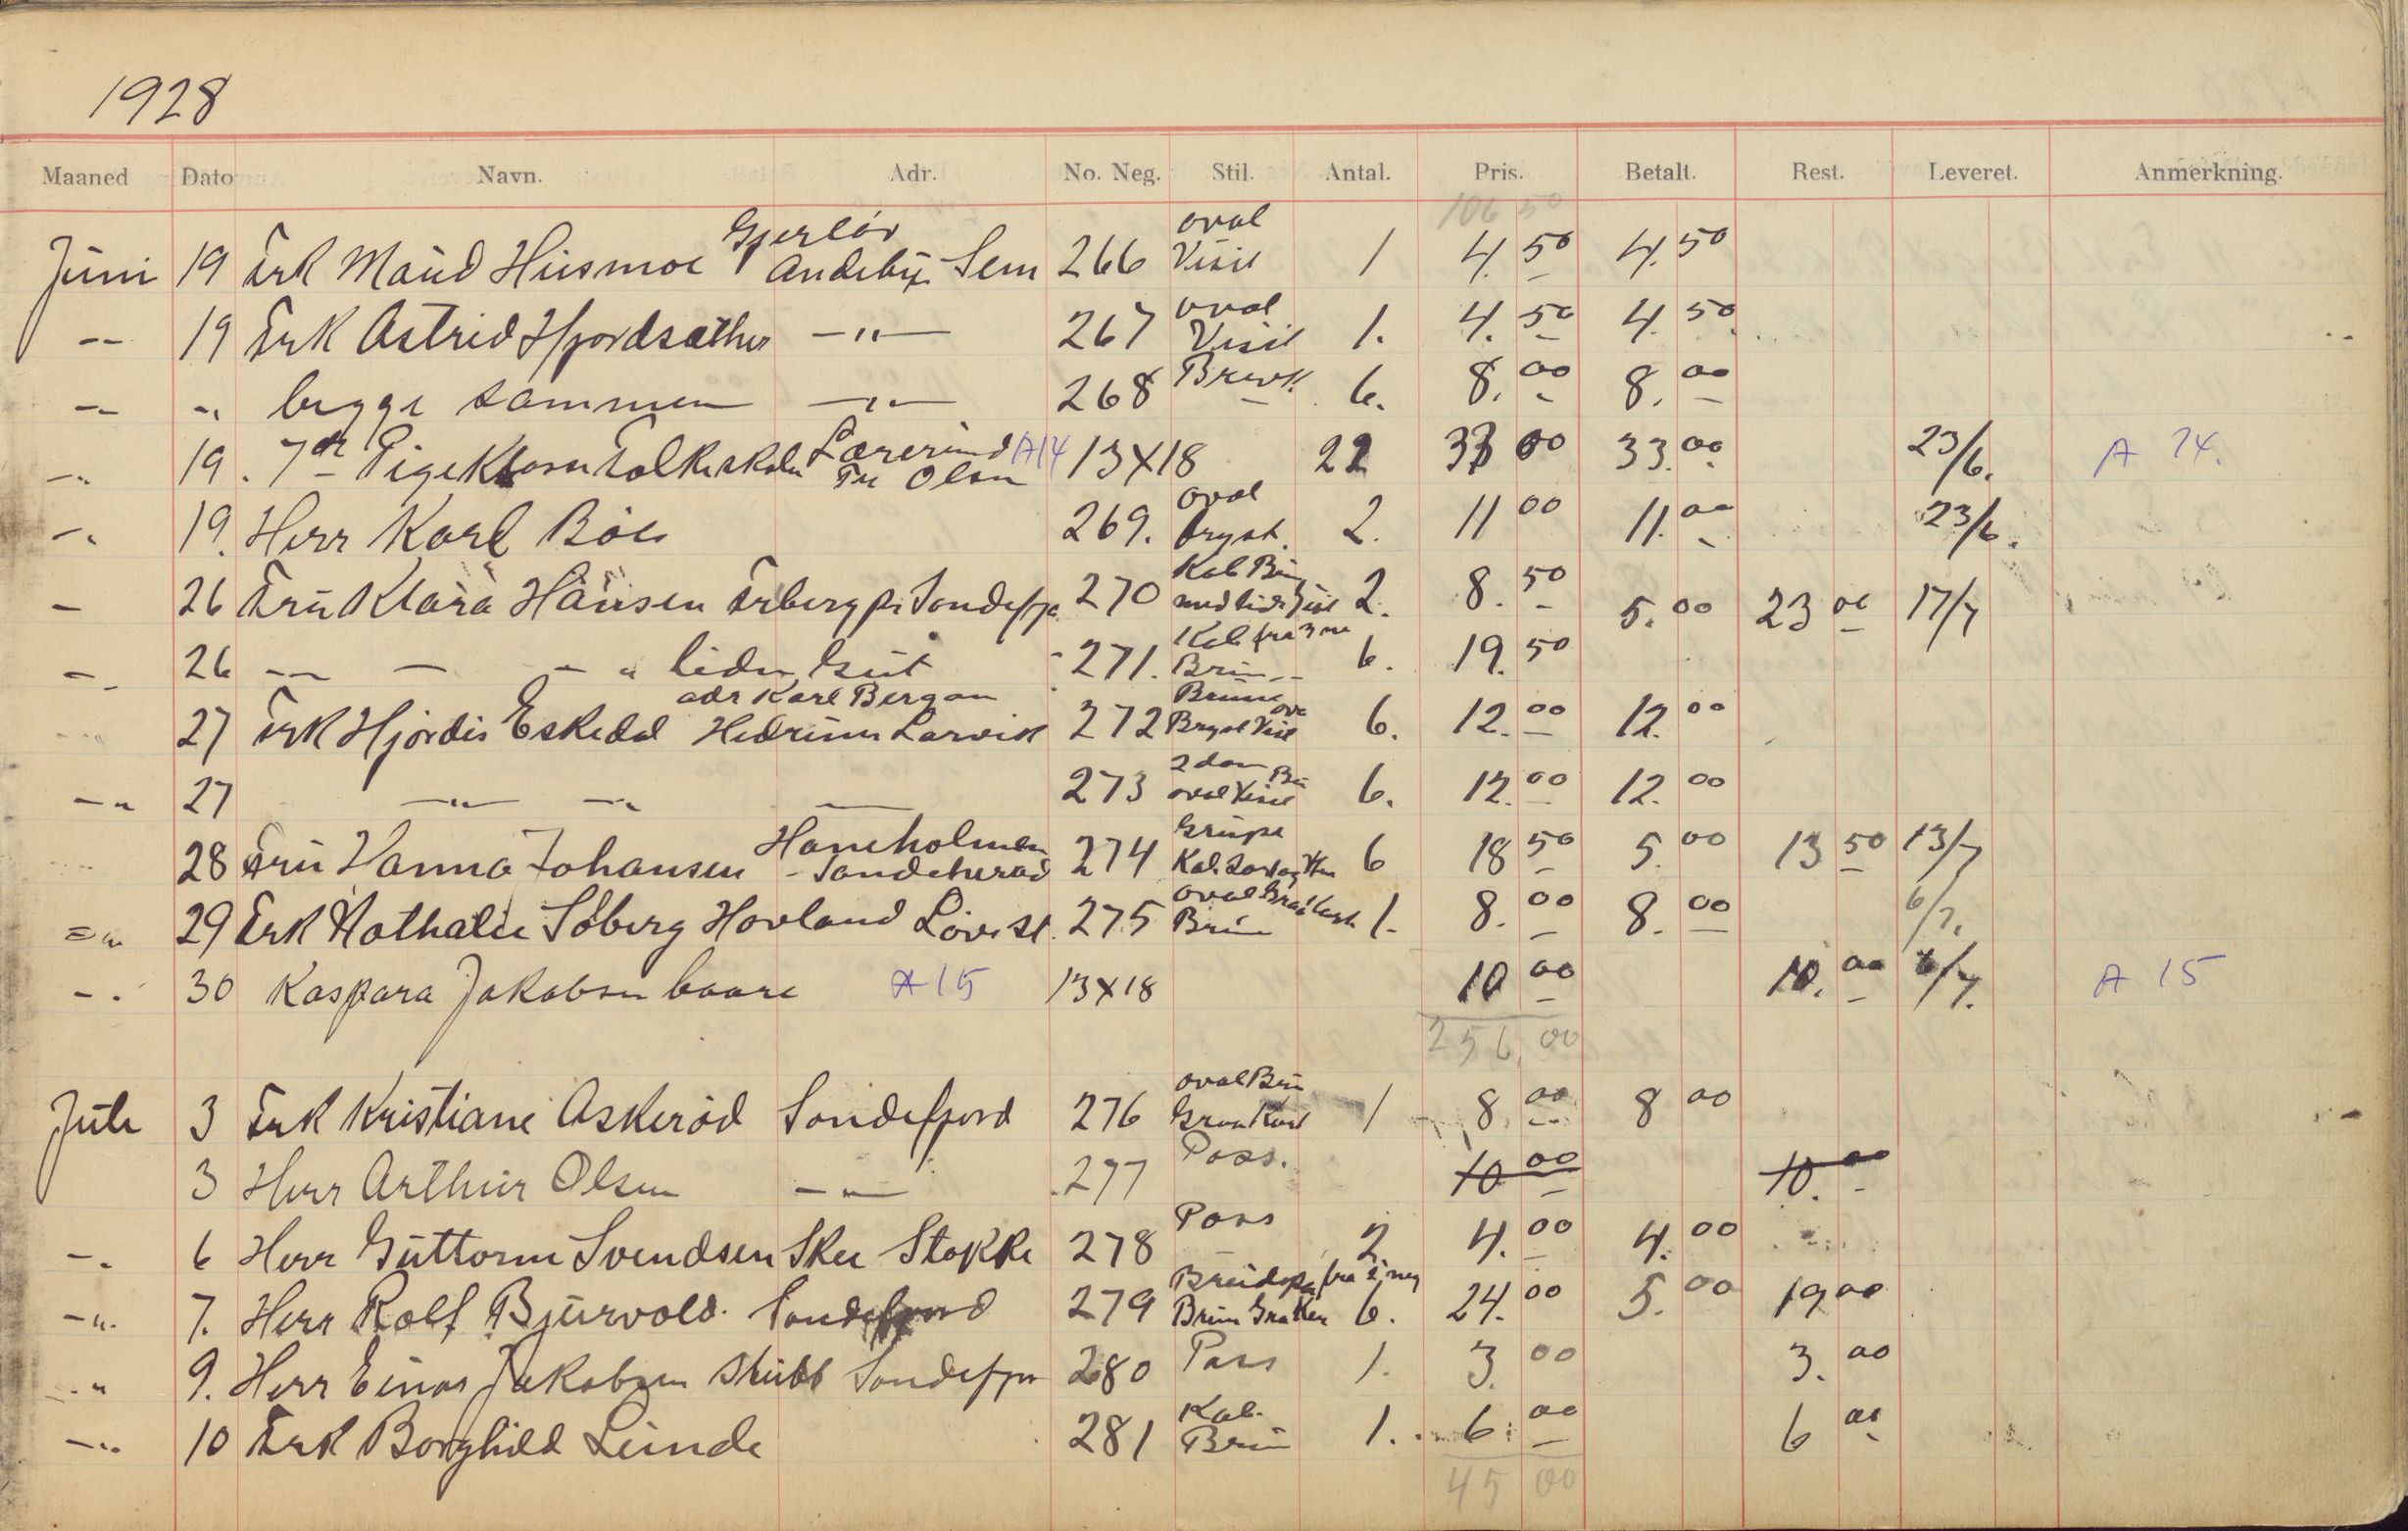 1928
Maaned Dato Navn. Adr. No. Neg. Stil. Antal. Pris. Betalt. Rest. Leveret. Anmerkning.
106 50
Juni 19 Frk Maud Husmoe Gjerlöv Andebu Sem 266 oval Visit 1 4.50 4.50
-"- 19 Frk Astrid Hjordsæther -"- 267 oval Visit 1. 4.50 4.50
-"- " begge sammen -"- 268 Brevk. 6. 8.00 8.00
-"- 19. 7de Pigeklasse Folkeskolen Lærerind Fru Olsen A14 13x18 22 33 00 33.00 23/6. A 14.
-"- 19. Herr Karl Böe 269. oval bryst. 2. 11 00 11.00 23/6.
- 26 Fru Klara Hansen pr Sandefj. 270 Kab Brun 2. 8.50 5.00 23 00 17/7
-"- 26 -"- - -"- liden Gut 271. Kab fra Brun 6. 19.50
27 Frk Hjördis Eskedal adr Karl Bergan Hedrum Larvik 272 Brune Bryst Visit 6. 12.00 12.00
-"- 27 -"- -"- - 273 oval Visit 6. 12.00 12.00
28 Fru Vanna Johansen Haneholmen Sandeherad 274 Grupe Kab. 6 18 50 5.00 13 50 13/7
-"- 29 Frk Nathalie Söberg Hovland Löve st. 275 oval Brun 1. 8.00 8.00 6/7.
-"- 30 Kaspara Jakobsen baare A 15 13x18 10 00 10.00 6/7. A 15
256,00
Juli 3 Frk Kristiane Askeröd Sandefjord 276 oval Brun Graa Kart 1 8.00 8 00
3 Herr Arthur Olsen -"- 277 Pass. 10 00 10.00
-"- 6 Herr Guttorm Svendsen Skee Stokke 278 Pass 2. 4.00 4.00
-"- 7. Herr Rolf Bjurvold. Sandefjord 279 fra 2 neg Brun 6. 24.00 5.00 19 00
-"- 9. Herr Einar Jakobsen Stubb Sandefjor 280 Pass 1. 3.00 3.00
-"- 10 Frk Borghild Lunde 281 Kab. Brun 1. 6.00 6 00
45 00